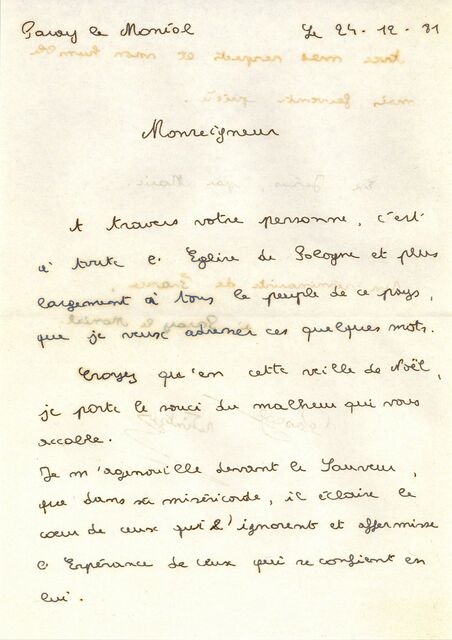 Paray le Monial Le 24.12.81
Monseigneur
A travers votre personne, c'est
à toute l'Eglise de Pologne et plus
largement à tous le peuple de ce pays,
que je veux adresser ces quelques mots.
Croyez qu'en cette veille de Noël,
je porte le souci du malheur qui vous
accable.
Je m'agenouille devant le Sauveur,
que dans sa miséricorde, il éclaire le
cœur de ceux qui l'ignorent et affermisse
l'Espérance de ceux qui se confient en
lui.